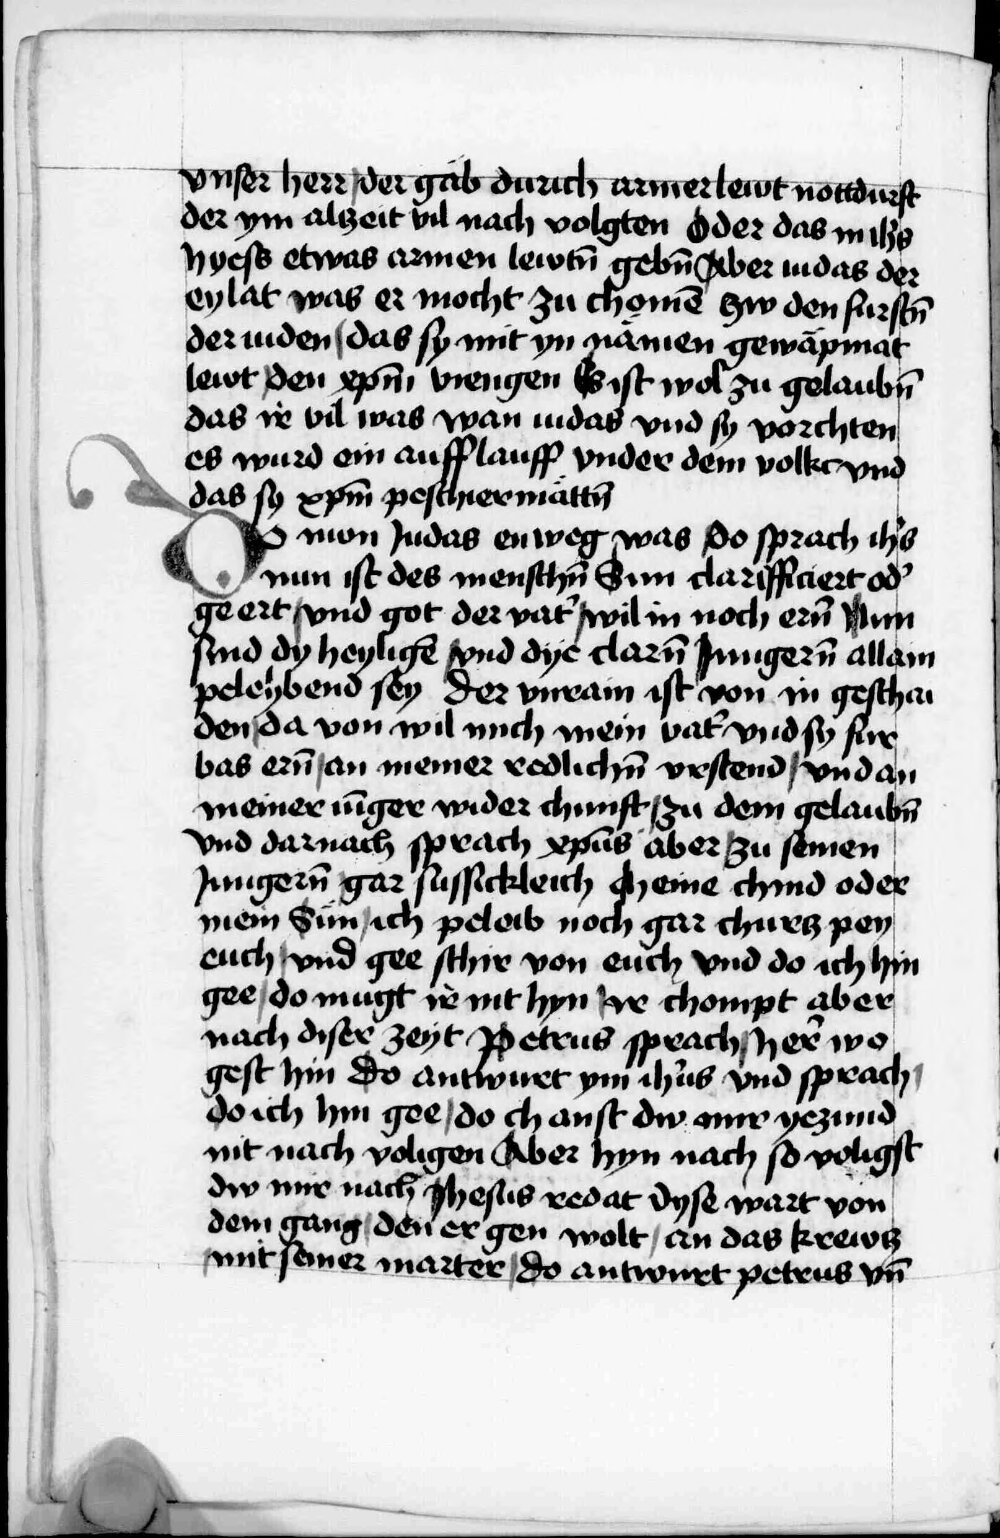 vnser herr / der gäb durich armer lewt nottdurft
der ym alzeit vil nach volgten Oder das in ih̄s
hyess etwas armen lewtn̄ gebn̄ Aber iudas der
eylat was er mocht zu chomē Hw den fursтn̄
der iuden / das sy mit yn nämen gewäpmat
lewt / den xp̄m viengen Es ist wol zu gelaubn̄
das ir vil was wan iudas vnd sy vorchten
es wurd ein aufflauff vnder dem volkc vnd
das sy xp̄m peschiermättn̄
Do nvon Judas enweg was Do sprach ih̄s
nun ist des menschn̄ Sun clarifficiert od'
geert / vnd got der vat' / wil in noch ern̄ Nun
sind dy heyligē / vnd dye clarn̄ Jungern̄ allain
peleybend sey Der vnrain ist von in geschai
den / da von wil mich mein vat' vnd sy fur
bas ern̄ / an meiner redlichn̄ vrstend / vnd an
meiner iūger wider chunft / zu dem gelaubn̄
vnd darnach sprach xp̄us aber / zu seinen
Jungern̄ / gar sussickleich cheine chind oder
mein Sün / ich peleib noch gar churtz pey
euch / vnd gee schir von euch vnd do ich hin
gee / do mugt ir nit hyn / ir chompt aber
nach diser zeyt Petrus sprach / her' wo
gest hin Do antwurt ym ih̄us vnd sprach /
do ich hin gee / do chanst dw mir yezund
nit nach voligen Aber hyn nach so voligst
dw mir nach Jhesus redat dyse wart von
dem gang / den er gen wolt / an das krewtz
mit seiner marter / Do antwurt petrus vn̄